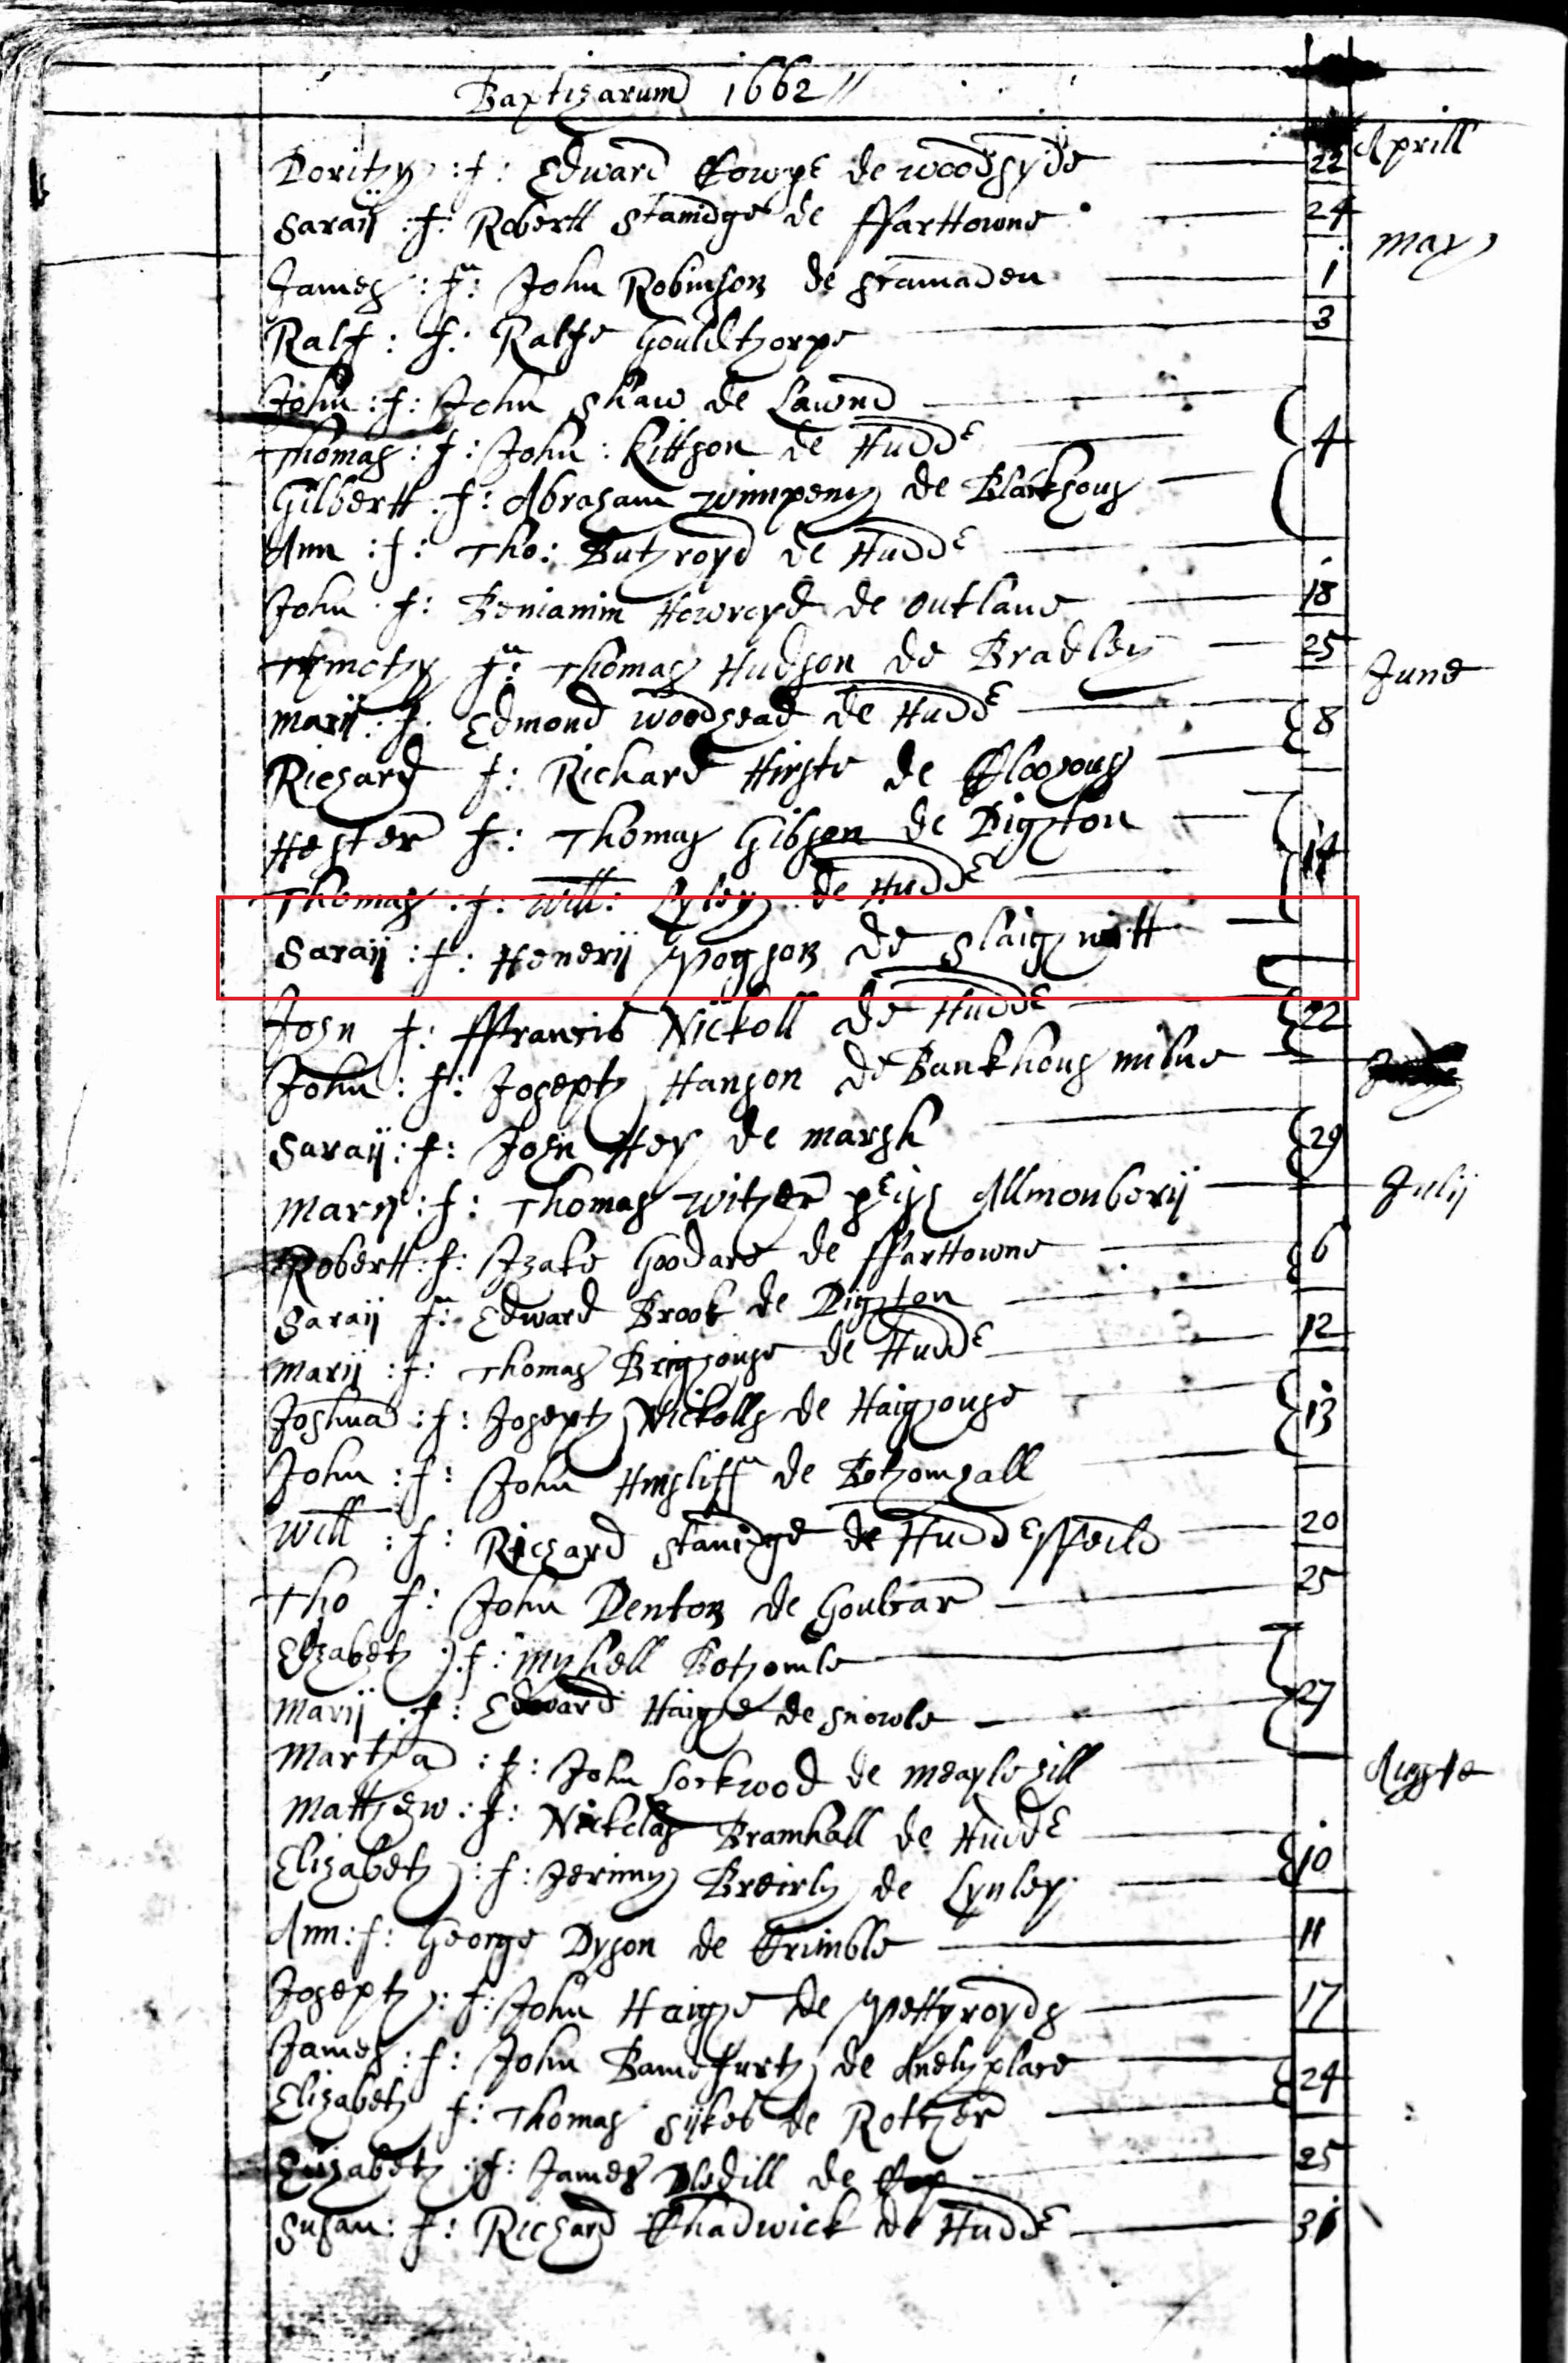 Baptizarum 1662
Aprill
Dorithy : f : Edward Cowpe de woodsyde 22
Saraij : f : Robertt Stanidge de ffarttowne 24
May
James : f : John Robinson de Scamaden 1
Ralf : f : Ralfe Gouldthorpe 3
John : f : John Shaw de Lawnd
Thomas : f : John : Kittson de Hudde 4
Gilbertt : f : Abraham Winnpeny de Blackhous
Ann : f : Tho : Buthroyd de Hudde
John f : Beniamin Howroyd de Outlane 18
Tymothy f : Thomas Hudson de Bradley 25
June
Marij : f : Edmond Woodhead de Hudde 8
Richard f : Richard Hirste de
Hester f : Thomas Gibson de Dighton 14
Thomas : f : Will : Lyley de Hudde
Saraij : f : Henerij Pogson de Slaighwitt
John f : ffrancis Nickoll de Hudde 22
John : f : Joseph Hanson de Bankhous milne
Saraij : f : John Hey de Marsh 29
Marij : f : Thomas Wither Allmonberij
Julij
Robertt : f : Izake Goodare de ffarttowne 6
Saraij f : Edward Brook de Dighton
Marij : f : Thomas Brighouse de Hudde 12
Joshua : f : Joseph Nickolls de Haighouse 13
John : f : John Hinsliff de Bothomhall
Will : f : Richard Stanidge de Huddeffeild 20
Tho f : John Denton de Goulcar 25
Elizabeth : f : Myhell Bothomle
Marij : f : Edward Haighe de Snowle 27
Martha : f : John Lockwood de Meaplehill
Auguste
Matthew : f : Nickolas Bramhall de Hudde
Elizabeth : f : Jerimy Breirly de Lynley 10
Ann : f : George Dyson de Crimble 11
Joseph : f : John Haighe de Pettyroyds 17
James : f : John Bamfurth de place
Elizabeth f : Thomas Sykes de Rother 24
Elizabeth : f : James Bledill de 25
Susan : f : Richard Chadwick de Hudde 31